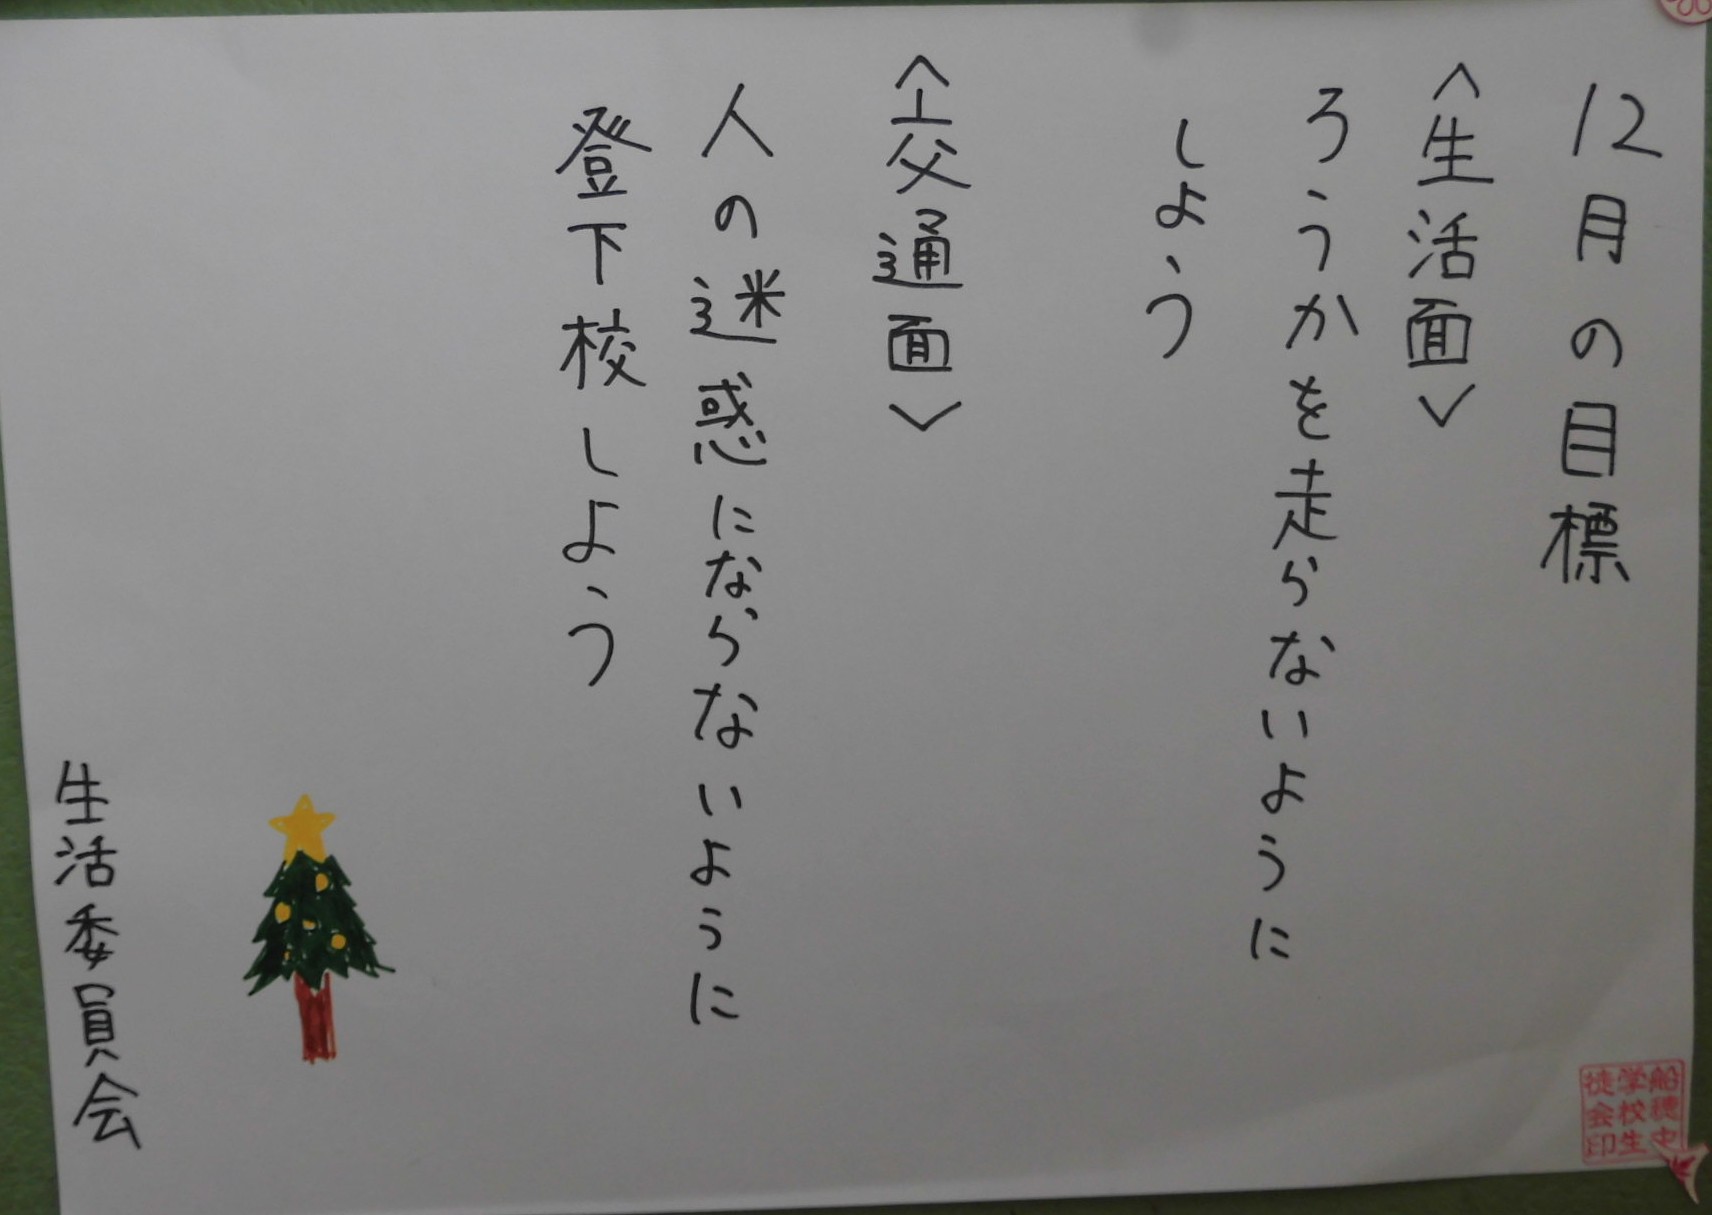 12月の目標
〈生活面〉
ろうかを走らないように
しよう
〈交通面〉
人の迷惑にならないように
登下校しよう
生活委員会
船穂中
学校生
徒会印